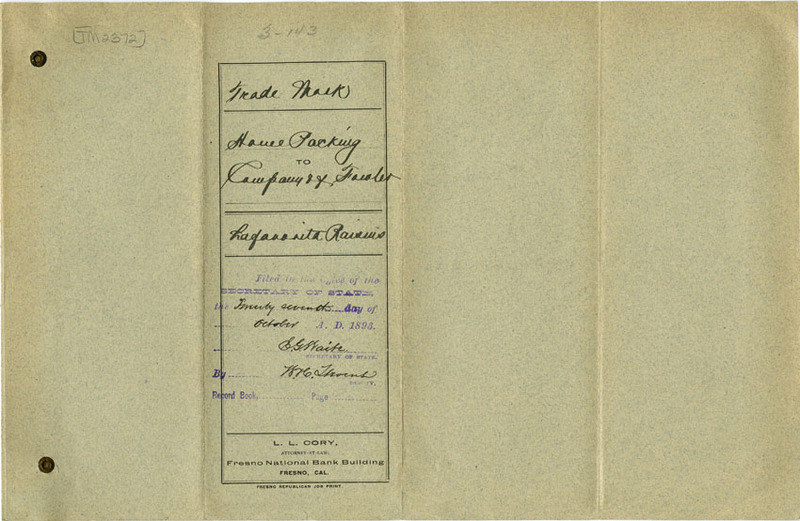 [TM2372]
3-143
Trade Mark
Home Packing
TO
Company of Fowler
Lafavorita Raisins
Filed in the office of the
SECRETARY OF STATE,
the Twenty seventh day of
October A. D. 1893.
E. G. Waite
SECRETARY OF STATE.
By
DEPUTY.
Record Book, Page
L. L. CORY,
ATTORNEY-AT-LAW,
Fresno National Bank Building
FRESNO, CAL.
FRESNO REPUBLICAN JOB PRINT.